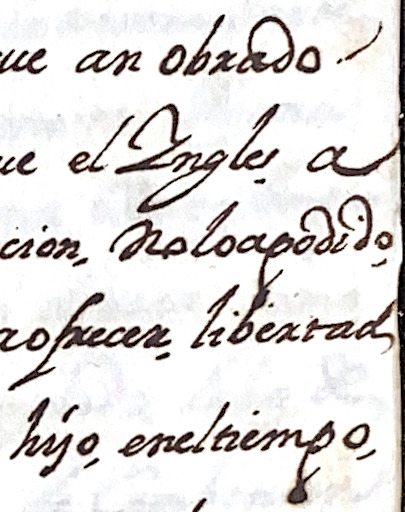 ue an obrado
ue el Yngles a
cion, No loapodido,
rofrecer, libertad
hijo, eneltiempo,